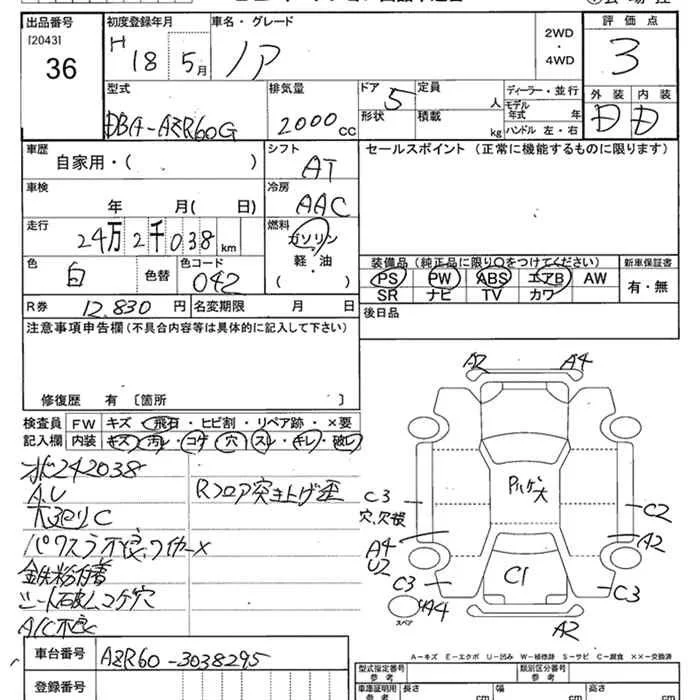 出品番号 初度登録年月 車名・グレード 2WD・4WD 評価点
[2043] 36 H 18 5月 ノア 3
外装 内装
D D
型式 排気量 ドア 定員 人 ディーラー・並行
DBA-AZR60G 2000cc 5 形状 積載 kg モデル年式 年
ハンドル 左・右
車歴 シフト セールスポイント (正常に機能するものに限ります)
自家用・( ) AT
車検 冷房
年 月( 日) AAC
走行 燃料
24万2千038km ガソリン
軽・油
( )
色 色替 色コード
白 042
装備品(純正品に限り○をつけてください) 新車保証書
PS PW ABS エアB AW 有・無
SR ナビ TV カワ
R券 12,830円 名変期限 月 日 後日品
注意事項申告欄(不具合内容等は具体的に記入して下さい)
修復歴 有 〔箇所 〕
検査員記入欄 FW キズ・飛石・ヒビ割・リペア跡・×要
内装 キズ・汚レ・コゲ・穴・スレ・キレ・破レ
242038
A.U Rフロア突き上げ歪
C
パワスラ不良、ワイヤー×
鉄粉付着
シート破れ、コゲ穴
A/C不良
A2 A4
Pハゲ大
C3 C2
穴、欠損
A4 A2
U2
C3 C1 C3
A4
スペア
A2
A-キズ E-エクボ U-凹み W-補修跡 S-サビ C-腐食 ××-交換済
車台番号 AZR60-3038295
登録番号
型式指定番号 参考 類別区分番号 参考
車庫証明用 参考 長さ cm 幅 cm 高さ cm